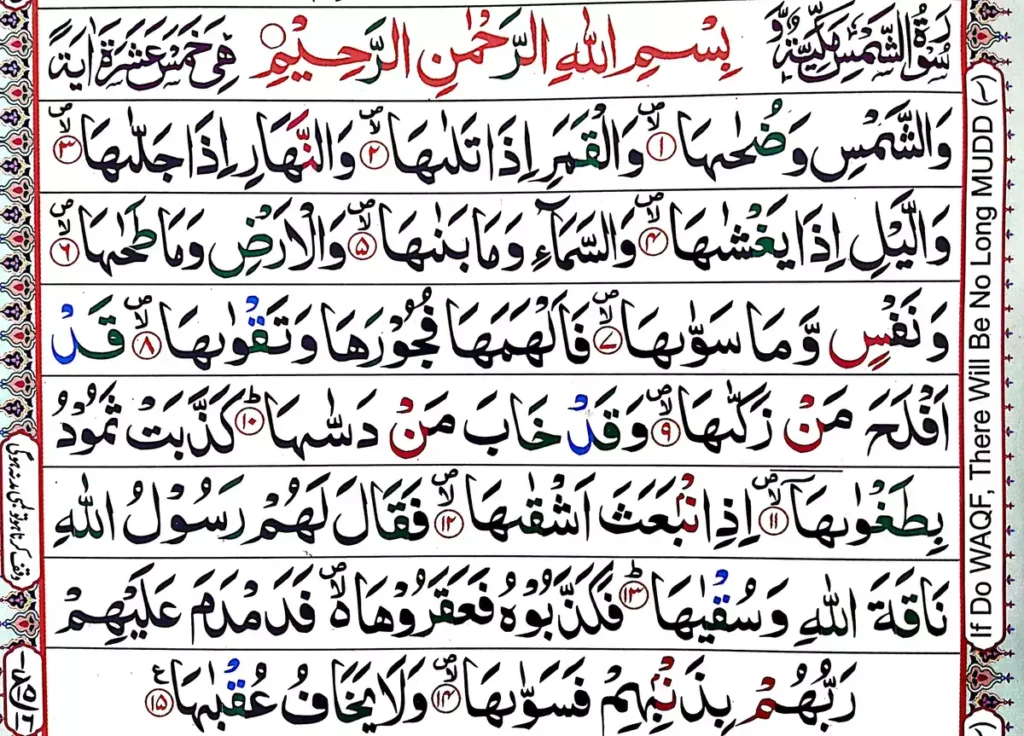 سُوْرَةُ الشَّمْسِ مَكِّيَّةٌ وَّ بِسْمِ اللّٰهِ الرَّحْمٰنِ الرَّحِيْمِ هِيَ خَمْسَ عَشَرَةَ اٰيَةً
وَالشَّمْسِ وَضُحٰىهَا ۙ۱ وَالْقَمَرِ اِذَا تَلٰىهَا ۙ۲ وَالنَّهَارِ اِذَا جَلّٰىهَا ۙ۳
وَالَّيْلِ اِذَا يَغْشٰىهَا ۙ۴ وَالسَّمَآءِ وَمَا بَنٰىهَا ۙ۵ وَالْاَرْضِ وَمَا طَحٰىهَا ۙ۶
وَنَفْسٍ وَّمَا سَوّٰىهَا ۙ۷ فَاَلْهَمَهَا فُجُوْرَهَا وَتَقْوٰىهَا ۙ۸ قَدْ
اَفْلَحَ مَنْ زَكّٰىهَا ۙ۹ وَقَدْ خَابَ مَنْ دَسّٰىهَا ؕ۱۰ كَذَّبَتْ ثَمُوْدُ
بِطَغْوٰىهَآ ۙ۱۱ اِذِ انْۢبَعَثَ اَشْقٰىهَا ۙ۱۲ فَقَالَ لَهُمْ رَسُوْلُ اللّٰهِ
نَاقَةَ اللّٰهِ وَسُقْيٰهَا ؕ۱۳ فَكَذَّبُوْهُ فَعَقَرُوْهَا ۙ۬ فَدَمْدَمَ عَلَيْهِمْ
رَبُّهُمْ بِذَنْۢبِهِمْ فَسَوّٰىهَا ۙ۱۴ وَلَا يَخَافُ عُقْبٰهَا ۱۵ ع
If Do WAQF, There Will Be No Long MUDD (~)
وقف کرنا ہو تو لمبی مد نہ ہوگی